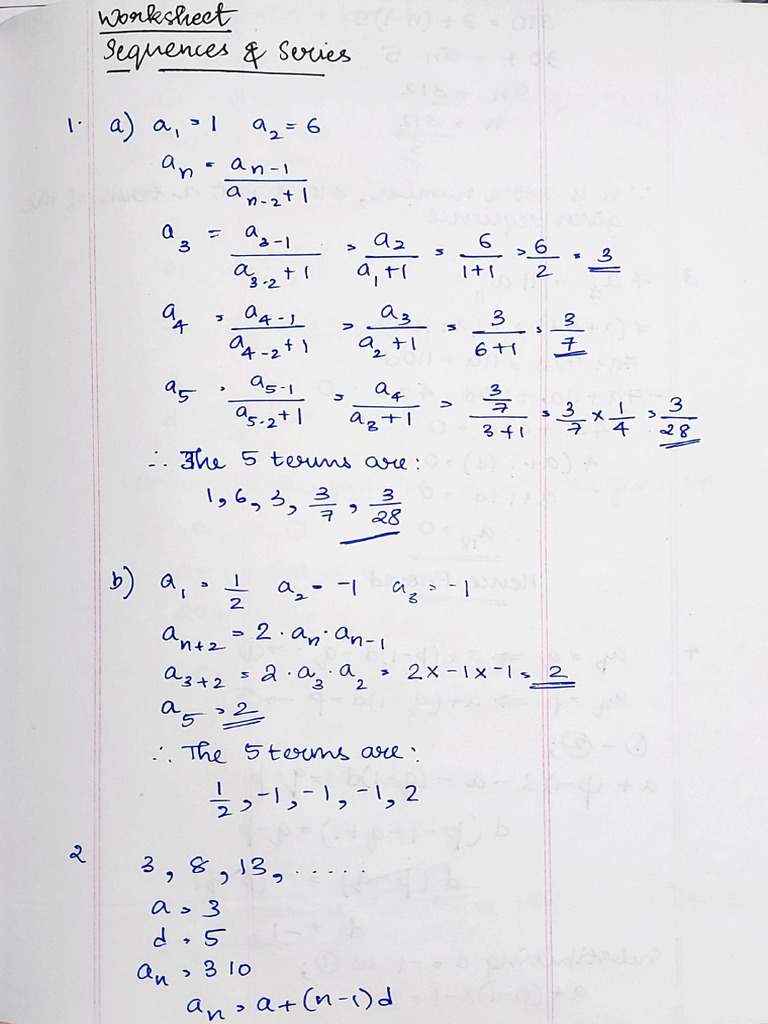 Worksheet
Sequences & Series
1. a) a₁ = 1 a₂ = 6
aₙ = aₙ₋₁ / (aₙ₋₂ + 1)
a₃ = a₃₋₁ / (a₃₋₂ + 1) = a₂ / (a₁ + 1) = 6 / (1+1) = 6/2 = 3
a₄ = a₄₋₁ / (a₄₋₂ + 1) = a₃ / (a₂ + 1) = 3 / (6+1) = 3/7
a₅ = a₅₋₁ / (a₅₋₂ + 1) = a₄ / (a₃ + 1) = (3/7) / (3+1) = 3/7 × 1/4 = 3/28
∴ The 5 terms are:
1, 6, 3, 3/7, 3/28
b) a₁ = 1/2 a₂ = -1 a₃ = -1
aₙ₊₂ = 2 · aₙ · aₙ₋₁
a₃₊₂ = 2 · a₃ · a₂ = 2 × -1 × -1 = 2
a₅ = 2
∴ The 5 terms are:
1/2, -1, -1, -1, 2
2 3, 8, 13, .....
a = 3
d = 5
aₙ = 310
aₙ = a + (n-1)d